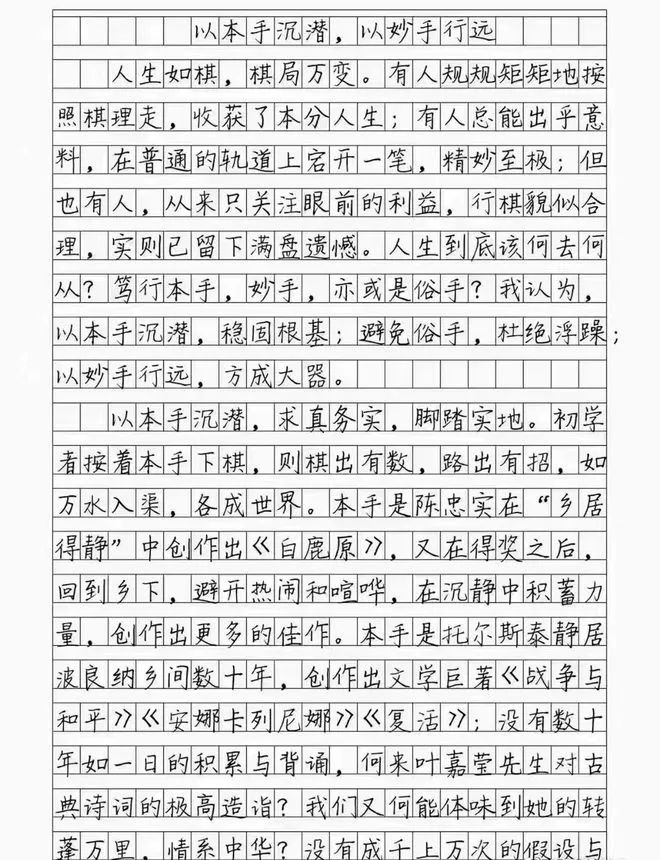 以本手沉潜，以妙手行远
人生如棋，棋局万变。有人规规矩矩地按
照棋理走，收获了本分人生；有人总能出乎意
料，在普通的轨道上宕开一笔，精妙至极；但
也有人，从来只关注眼前的利益，行棋貌似合
理，实则已留下满盘遗憾。人生到底该何去何
从？笃行本手，妙手，亦或是俗手？我认为，
以本手沉潜，稳固根基；避免俗手，杜绝浮躁；
以妙手行远，方成大器。
以本手沉潜，求真务实，脚踏实地。初学
者按着本手下棋，则棋出有数，路出有招，如
万水入渠，各成世界。本手是陈忠实在“乡居
得静”中创作出《白鹿原》，又在得奖之后，
回到乡下，避开热闹和喧哗，在沉静中积蓄力
量，创作出更多的佳作。本手是托尔斯泰静居
波良纳乡间数十年，创作出文学巨著《战争与
和平》《安娜卡列尼娜》《复活》；没有数十
年如一日的积累与背诵，何来叶嘉莹先生对古
典诗词的极高造诣？我们又何能体味到她的转
蓬万里，情系中华？没有成千上万次的假设与